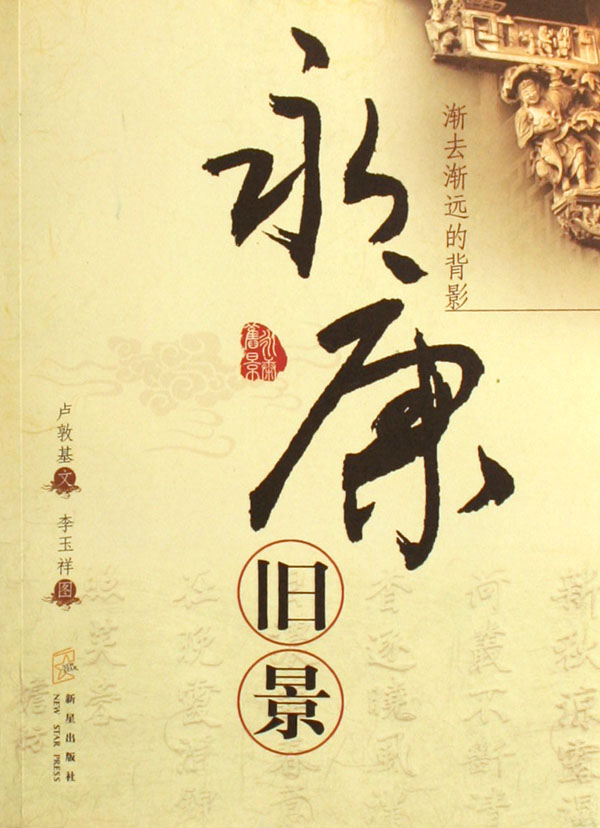 永康
旧景
渐去渐远的背影
永康
舊景
卢敦基 文
李玉祥 图
新星出版社
NEW STAR PRESS